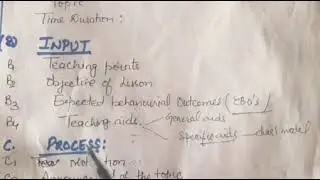 Topic
Time Duration :
(B) INPUT
B1 Teaching points
B2 Objective of Lesson
B3 Expected behavioural Outcomes (EBO's)
B4 Teaching aids general aids
Specific aids chart model
C. PROCESS:
C1 Motivation :
C2 of the topic